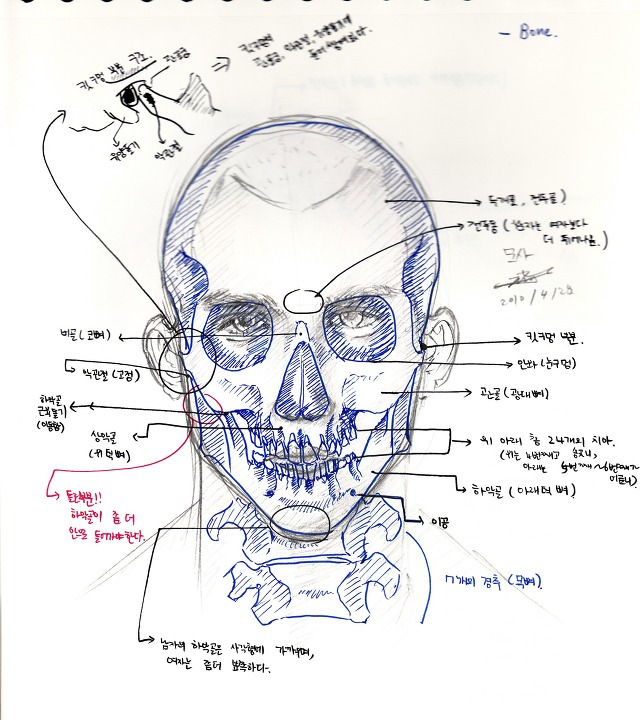 - Bone.
귓구멍 부분 구조.
전동골
귓구멍엔
⇒ 전동골, 악관절, 유양돌기가
들어 있다.
유양돌기
악관절
두개골, 전두골)
전두동 (남자는 여자보다
더 튀어나옴.)
묘사
2010/4/28
비골 (코뼈)
귓구멍 부분.
안와 (눈구멍)
악관절 (고정)
관골 (광대뼈)
하악골
근돌기
(이동함)
상악골
(위턱뼈)
위 아래 총 24개의 치아.
(위는 4번째가 송곳니,
아래는
하악골 (아래턱뼈)
이공
하악골이 좀 더
안으로 들어가야 한다.
7개의 경추 (목뼈).
남자의 하악골은 사각형에 가까우며,
여자는 좀더 뾰족하다.